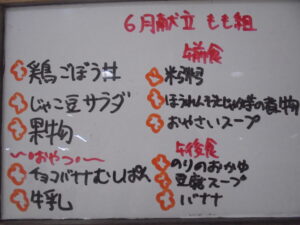 6月献立 もも組
鶏ごぼう丼
じゃこ豆サラダ
果物
〜おやつ〜
チョコバナナむしぱん
牛乳
午前食
米粥
ほうれんそうとじゃが芋の煮物
おやさいスープ
午後食
のりのおかゆ
豆腐スープ
バナナ